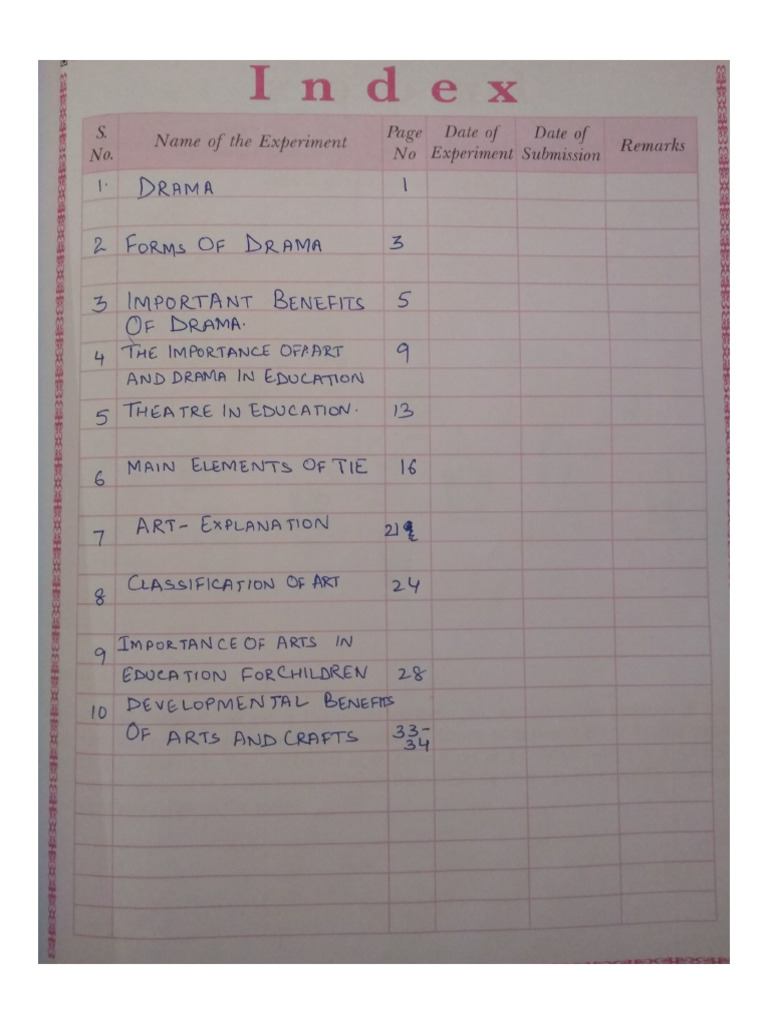 Index
S. No. Name of the Experiment Page No Date of Experiment Date of Submission Remarks
1. DRAMA 1
2 FORMS OF DRAMA 3
3 IMPORTANT BENEFITS 5
OF DRAMA.
4 THE IMPORTANCE OF ART 9
AND DRAMA IN EDUCATION
5 THEATRE IN EDUCATION. 13
6 MAIN ELEMENTS OF TIE 16
7 ART- EXPLANATION
8 CLASSIFICATION OF ART 24
9 IMPORTANCE OF ARTS IN
EDUCATION FOR CHILDREN 28
10 DEVELOPMENTAL BENEFITS
OF ARTS AND CRAFTS 33-
34